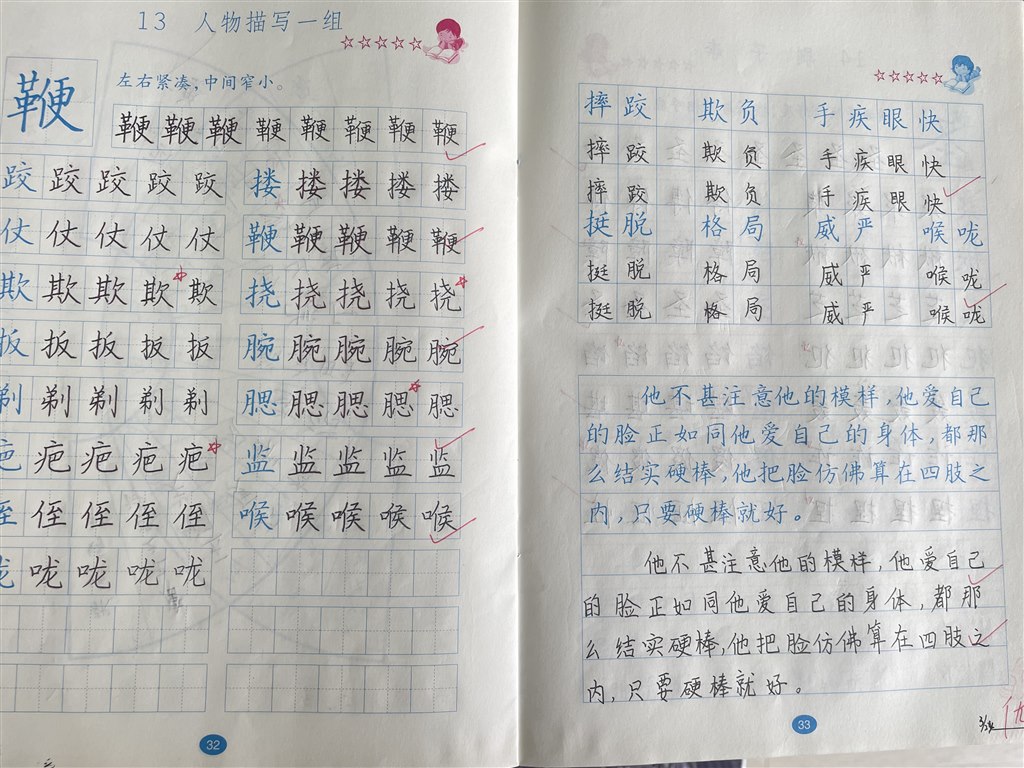 13 人物描写一组
鞭
左右紧凑，中间窄小。
鞭 鞭 鞭 鞭 鞭 鞭 鞭 鞭
跤 跤 跤 跤 跤 搂 搂 搂 搂 搂
仗 仗 仗 仗 仗 鞭 鞭 鞭 鞭 鞭
欺 欺 欺 欺 欺 挠 挠 挠 挠 挠
扳 扳 扳 扳 扳 腕 腕 腕 腕 腕
剃 剃 剃 剃 剃 腮 腮 腮 腮 腮
疤 疤 疤 疤 疤 监 监 监 监 监
侄 侄 侄 侄 侄 喉 喉 喉 喉 喉
咙 咙 咙 咙 咙
32
摔跤 欺负 手疾眼快
摔跤 欺负 手疾眼快
摔跤 欺负 手疾眼快
挺脱 格局 威严 喉咙
挺脱 格局 威严 喉咙
挺脱 格局 威严 喉咙
他不甚注意他的模样，他爱自己
的脸正如同他爱自己的身体，都那
么结实硬棒，他把脸仿佛算在四肢之
内，只要硬棒就好。
他不甚注意他的模样，他爱自己
的脸正如同他爱自己的身体，都那
么结实硬棒，他把脸仿佛算在四肢之
内，只要硬棒就好。
33